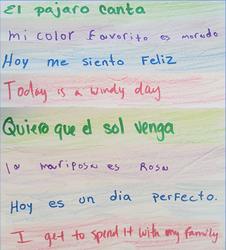 El pajaro canta
mi color favorito es morado
Hoy me siento Feliz
Today is a windy day
Quiero que el sol venga
la mariposa es Rosa
Hoy es un dia perfecto.
I get to spend it with my family